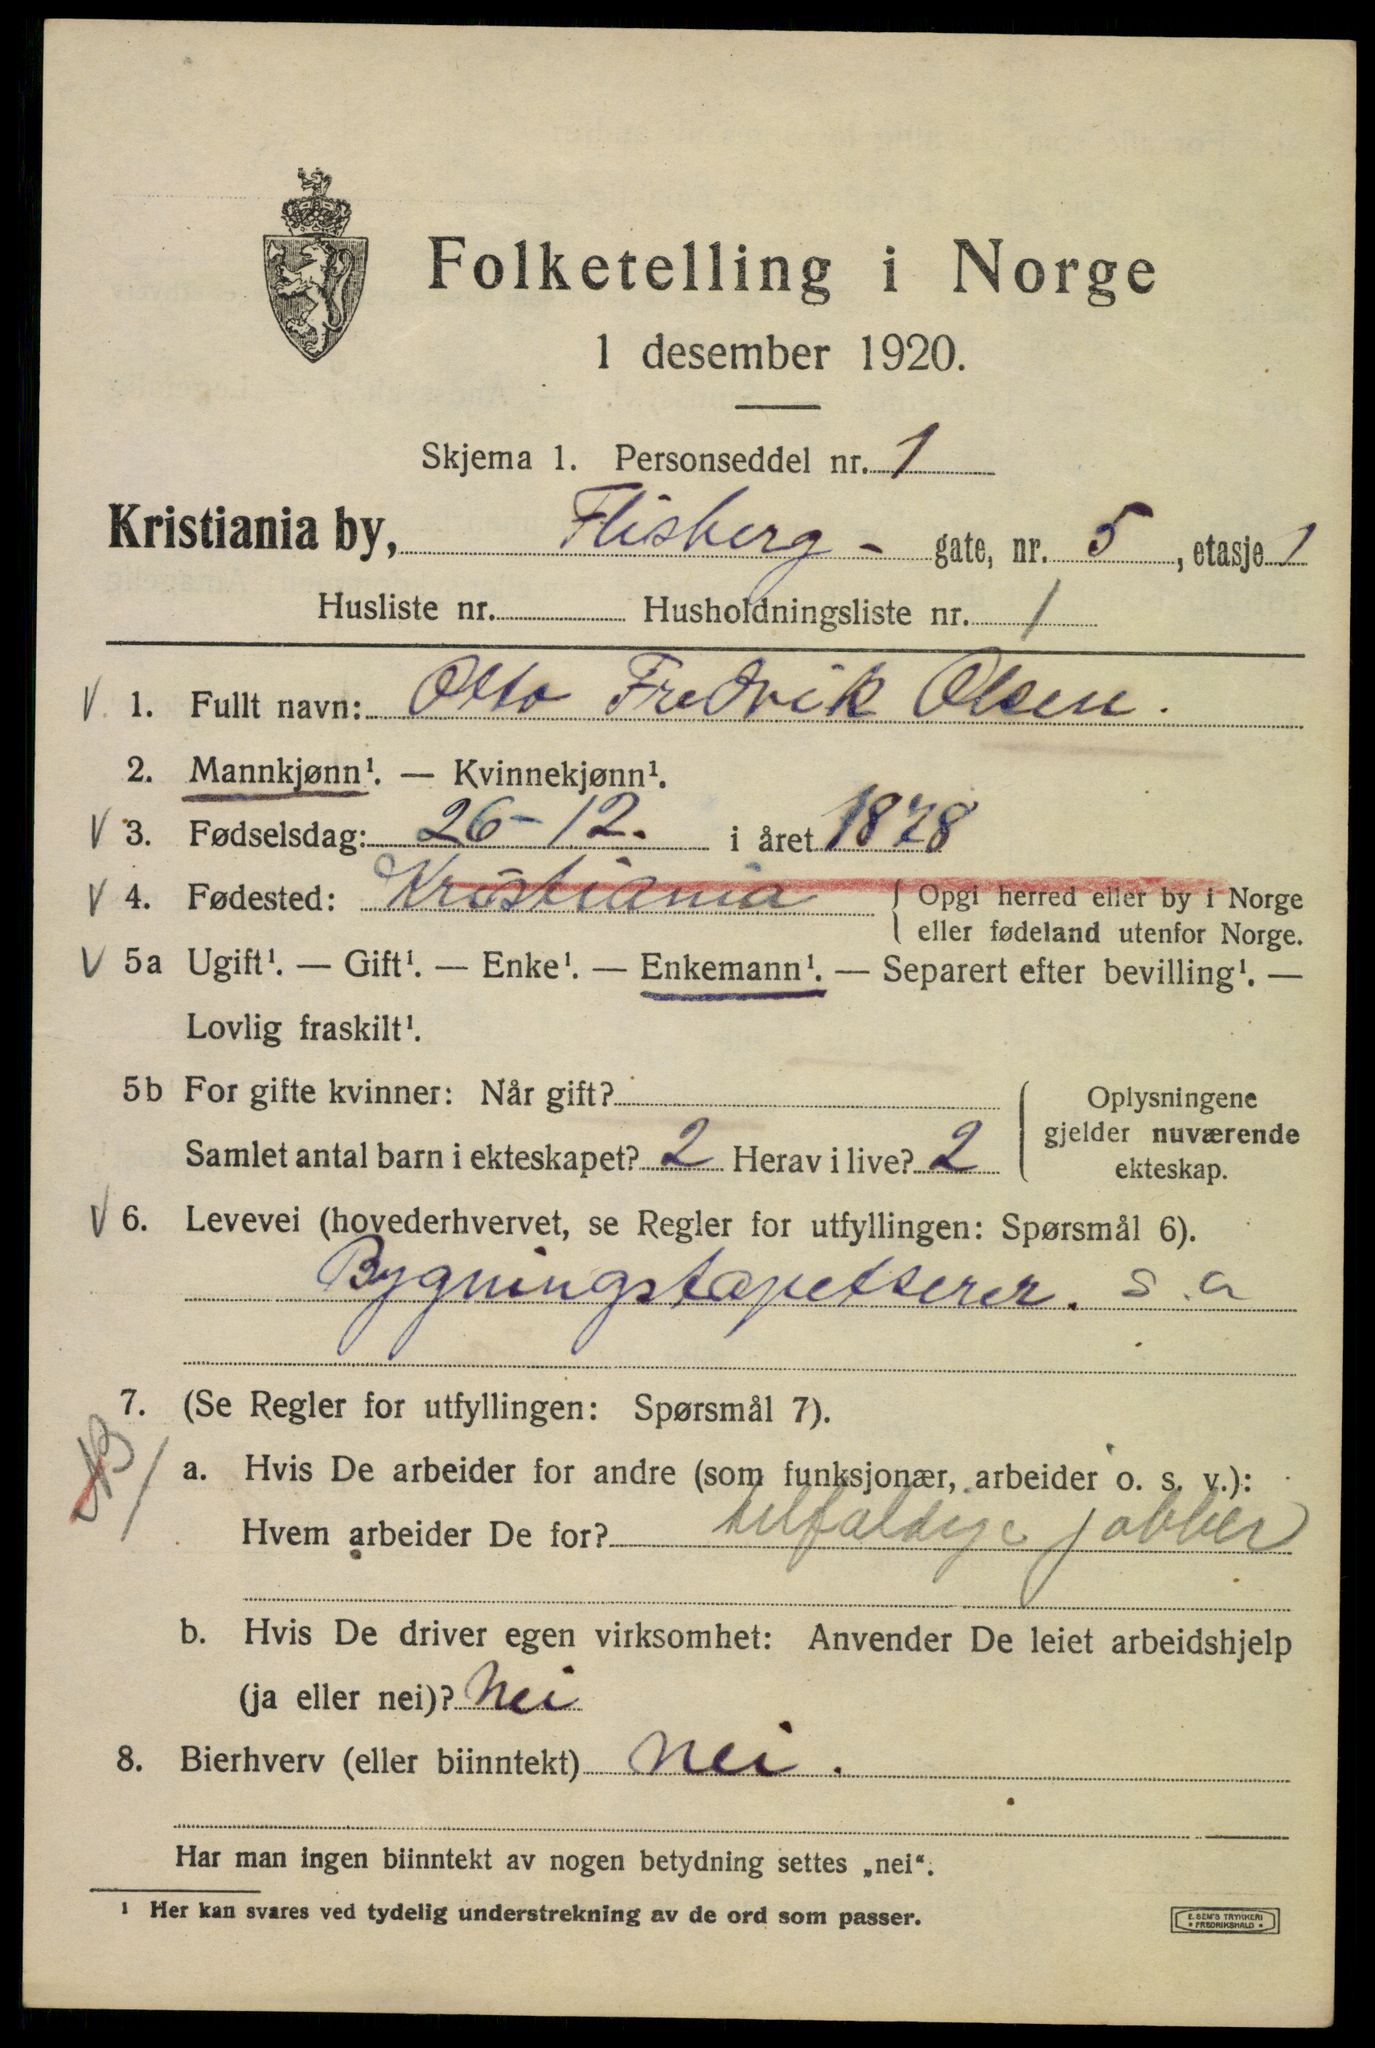 Folketelling i Norge
1 desember 1920.
Skjema 1. Personseddel nr. 1
Kristiania by, Flisberg - gate, nr. 5, etasje 1
Husliste nr. Husholdningsliste nr. 1
V 1. Fullt navn: Otto Fredrik Olsen.
2. Mannkjønn¹. — Kvinnekjønn¹.
V 3. Fødselsdag: 26-12. i året 1878
V 4. Fødested: Kristiania { Opgi herred eller by i Norge
eller fødeland utenfor Norge.
V 5a Ugift¹. — Gift¹. — Enke¹. — Enkemann¹. — Separert efter bevilling¹. —
Lovlig fraskilt¹.
5b For gifte kvinner: Når gift?
Samlet antal barn i ekteskapet? 2 Herav i live? 2
Oplysningene
gjelder nuværende
ekteskap.
V 6. Levevei (hovederhvervet, se Regler for utfyllingen: Spørsmål 6).
Bygningstapetserer. s.a
7. (Se Regler for utfyllingen: Spørsmål 7).
a. Hvis De arbeider for andre (som funksjonær, arbeider o. s. v.):
Hvem arbeider De for? tilfaldige jobber
b. Hvis De driver egen virksomhet: Anvender De leiet arbeidshjelp
(ja eller nei)? Nei
8. Bierhverv (eller biinntekt) Nei.
Har man ingen biinntekt av nogen betydning settes „nei“.
¹ Her kan svares ved tydelig understrekning av de ord som passer.
E. SEM'S TRYKKERI
• FREDRIKSHALD •